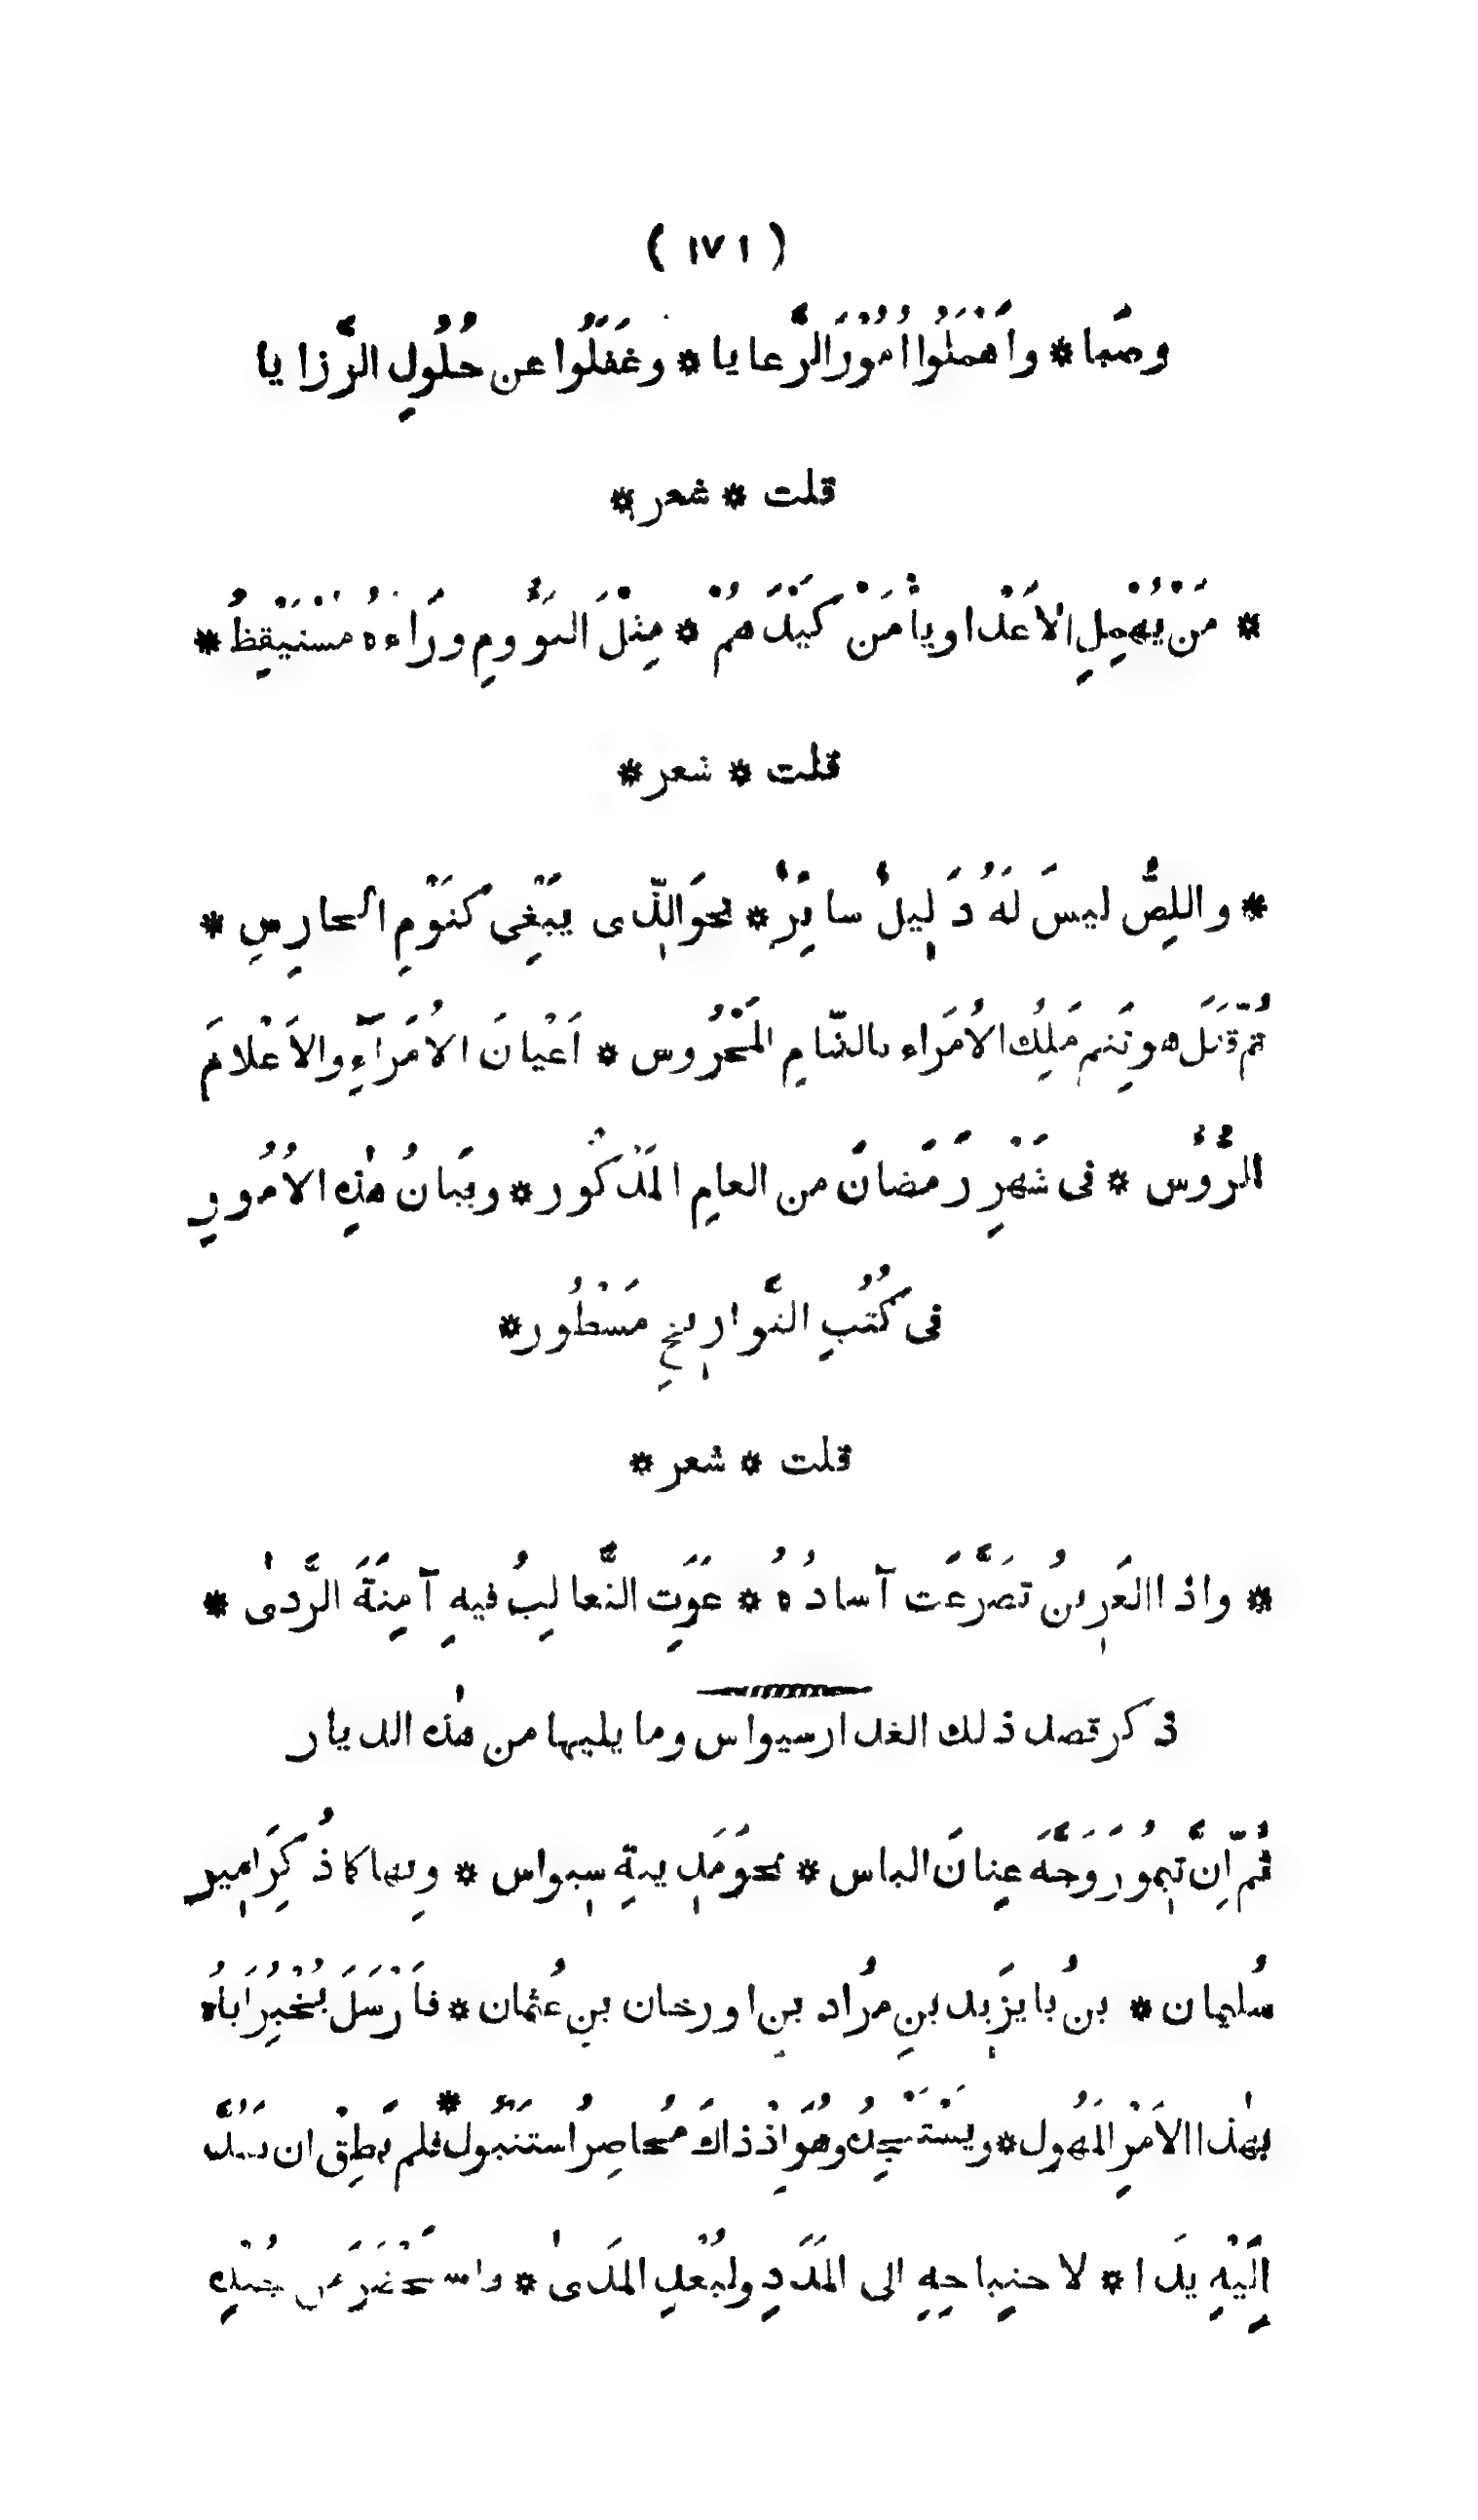 ( ١٧١ )
وصَبا * وأَهْمَلُوا أُمُوْرَ الرَّعايا * وغَفَلُوا عن حُلُولِ الرَّزايا
قلت * شعر *
* مَنْ يُهْمِلِ الاَعْدا ويأْمَنْ كَيْدَهُمْ * مِثْلَ النَّؤُومِ ورَاءَهُ مستَيْقِظُ *
قلت * شعر *
* واللِصُّ ليسَ لَهُ دَلِيلٌ سائِرٌ * نحوَ الَّذى يَبْغِي كَنَوْمِ الحارِسِ *
ثُمّ قَتَلَ هو وتَنم مَلِكُ الاُمَراء بالشّامِ المَحْرُوس * اَعْيانَ الاُمَرآءِ والاَعْلامَ
الرُّؤُس * فى شَهْرِ رَمَضانَ من العامِ المَذْكُور * وبَيانُ هٰذِهِ الاُمُورِ
فى كُتُبِ التَّوارِيخِ مَسْطُور *
قلت * شعر *
* واذا العَرِينُ تَصَرَّعَت آسادُهُ * عَوَتِ الثَّعالِبُ فيهِ آمِنَةَ الرَّدىٰ *
ذكر قصد ذلك الغدار سيواس وما يليها من هٰذه الديار
ثُمّ اِنَّ تِيمُورَ وَجَّهَ عِنانَ الباس * نحوَ مَدِينةِ سِيواس * وبِها كما ذُكِرَ اَمِير
سُليمان * بنُ بايَزِيد بنِ مرُاد بنِ اورخان بنِ عُثمان * فاَرْسَلَ يُخْبِرُ اَباهُ
بهٰذا الاَمْرِ المَهُول * ويَسْتَنْجِدُ وهُوَ اِذْ ذاكَ مُحاصِرُ اُستَنبُول * فلم يُطِقْ ان يَمُدَّ
اِلَيْهِ يدَا * لاحتِياجِهِ الى المَدَدِ ولبُعْدِ المَدىٰ * واستَحْضَرَ من جُنْدِهِ